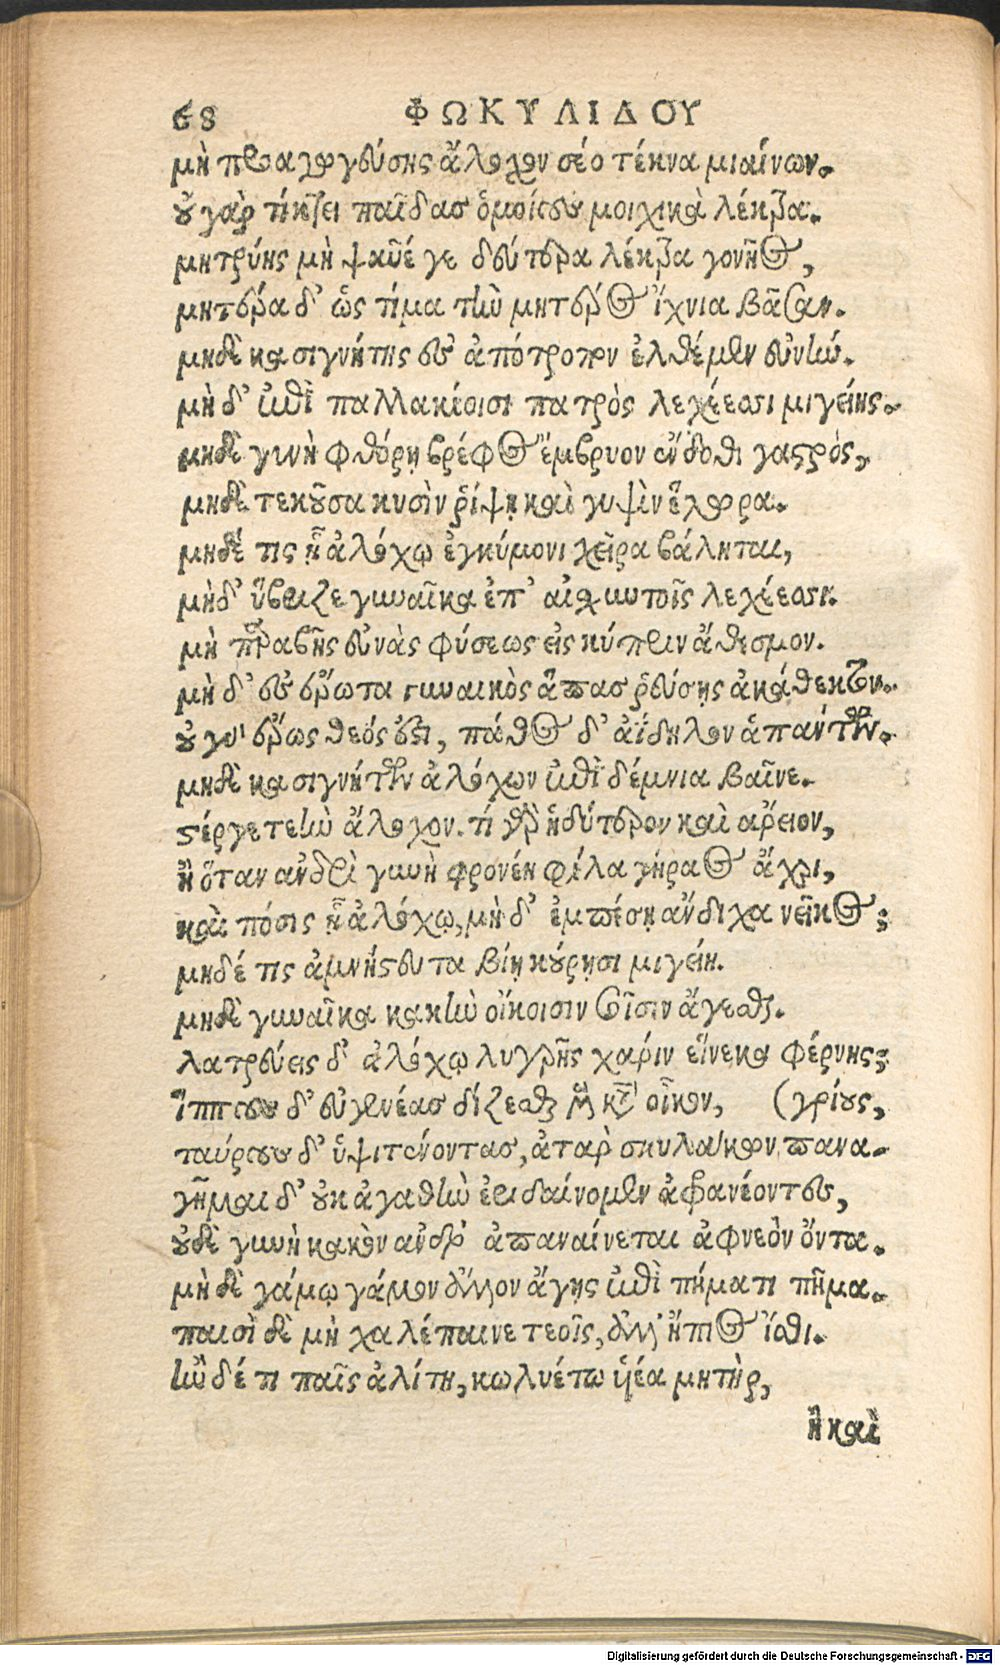 68 ΦΩΚΥΛΙΔΟΥ
μὴ προαγωγεύσης ἄλοχον σέο τέκνα μιαίνων.
οὐ γὰρ τίκτει παῖδας ὁμοίους μοιχικὰ λέκτρα.
μητρύης μὴ ψαῦέ γε δεύτερα λέκτρα γονῆος,
μητέρα δ᾽ ὡς τίμα τὴν μητέρος ἴχνια βᾶσαν.
μηδὲ κασιγνήτης ἐς ἀπότροπον ἐλθέμεν εὐνήν.
μὴ δ᾽ ἐπὶ παλλακίοισι πατρὸς λεχέεσσι μιγείης.
μηδὲ γυνὴ φθόρῃ βρέφος ἔμβρυον ἔνδοθι γαστρὸς,
μηδὲ τεκοῦσα κυσὶν ῥίψῃ καὶ γυψὶν ἕλωρα.
μηδέ τις ᾗ ἀλόχῳ ἐγκύμονι χεῖρα βάληται,
μὴ δ᾽ ὕβριζε γυναῖκα ἐπ᾽ αἰσχυντοῖς λεχέεσσι.
μὴ παραβῇς εὐνὰς φύσεως εἰς κύπριν ἄθεσμον.
μὴ δ᾽ ἐς ἔρωτα γυναικὸς ἅπας ῥεύσῃς ἀκάθεκτον.
οὐ γὰρ ἔρως θεός ἐστι, πάθος δ᾽ ἀΐδηλον ἁπάντων.
μηδὲ κασιγνήτων ἀλόχων ἐπὶ δέμνια βαῖνε.
στέργε τεὴν ἄλοχον. τί γὰρ ἡδύτερον καὶ ἄρειον,
ἢ ὅταν ἀνδρὶ γυνὴ φρονέῃ φίλα γήραος ἄχρι,
καὶ πόσις ᾗ ἀλόχῳ, μὴ δ᾽ ἐμπέσῃ ἄνδιχα νεῖκος;
μηδέ τις ἀμνήστευτα βίῃ κούρῃσι μιγείη.
μηδὲ γυναῖκα κακὴν οἴκοισιν τοῖσιν ἄγεσθαι.
λατρεύεις δ᾽ ἀλόχῳ λυγρῆς χάριν εἵνεκα φέρνης;
ἵππους δ᾽ εὐγενέας δίζεσθαι καὶ κατ᾽ οἶκον, (γρίους,
ταύρους δ᾽ ὑψιτένοντας, ἀτὰρ σκυλάκων πανα-
γῆμαι δ᾽ οὐκ ἀγαθὴν ἐριδαίνομεν ἀφρανέοντες,
οὐδὲ γυνὴ κακὸν ἄνδρ᾽ ἀπαναίνεται ἀφνεὸν ὄντα.
μὴ δὲ γάμῳ γάμον ἄλλον ἄγῃς ἐπὶ πήματι πῆμα.
παισὶ δὲ μὴ χαλέπαινε τεοῖς, ἀλλ᾽ ἤπιος ἴσθι.
ἢν δέ τι παῖς ἀλίτῃ, κωλυέτω υἱέα μητὴρ,
ἢ καὶ
Digitalisierung gefördert durch die Deutsche Forschungsgemeinschaft - DFG